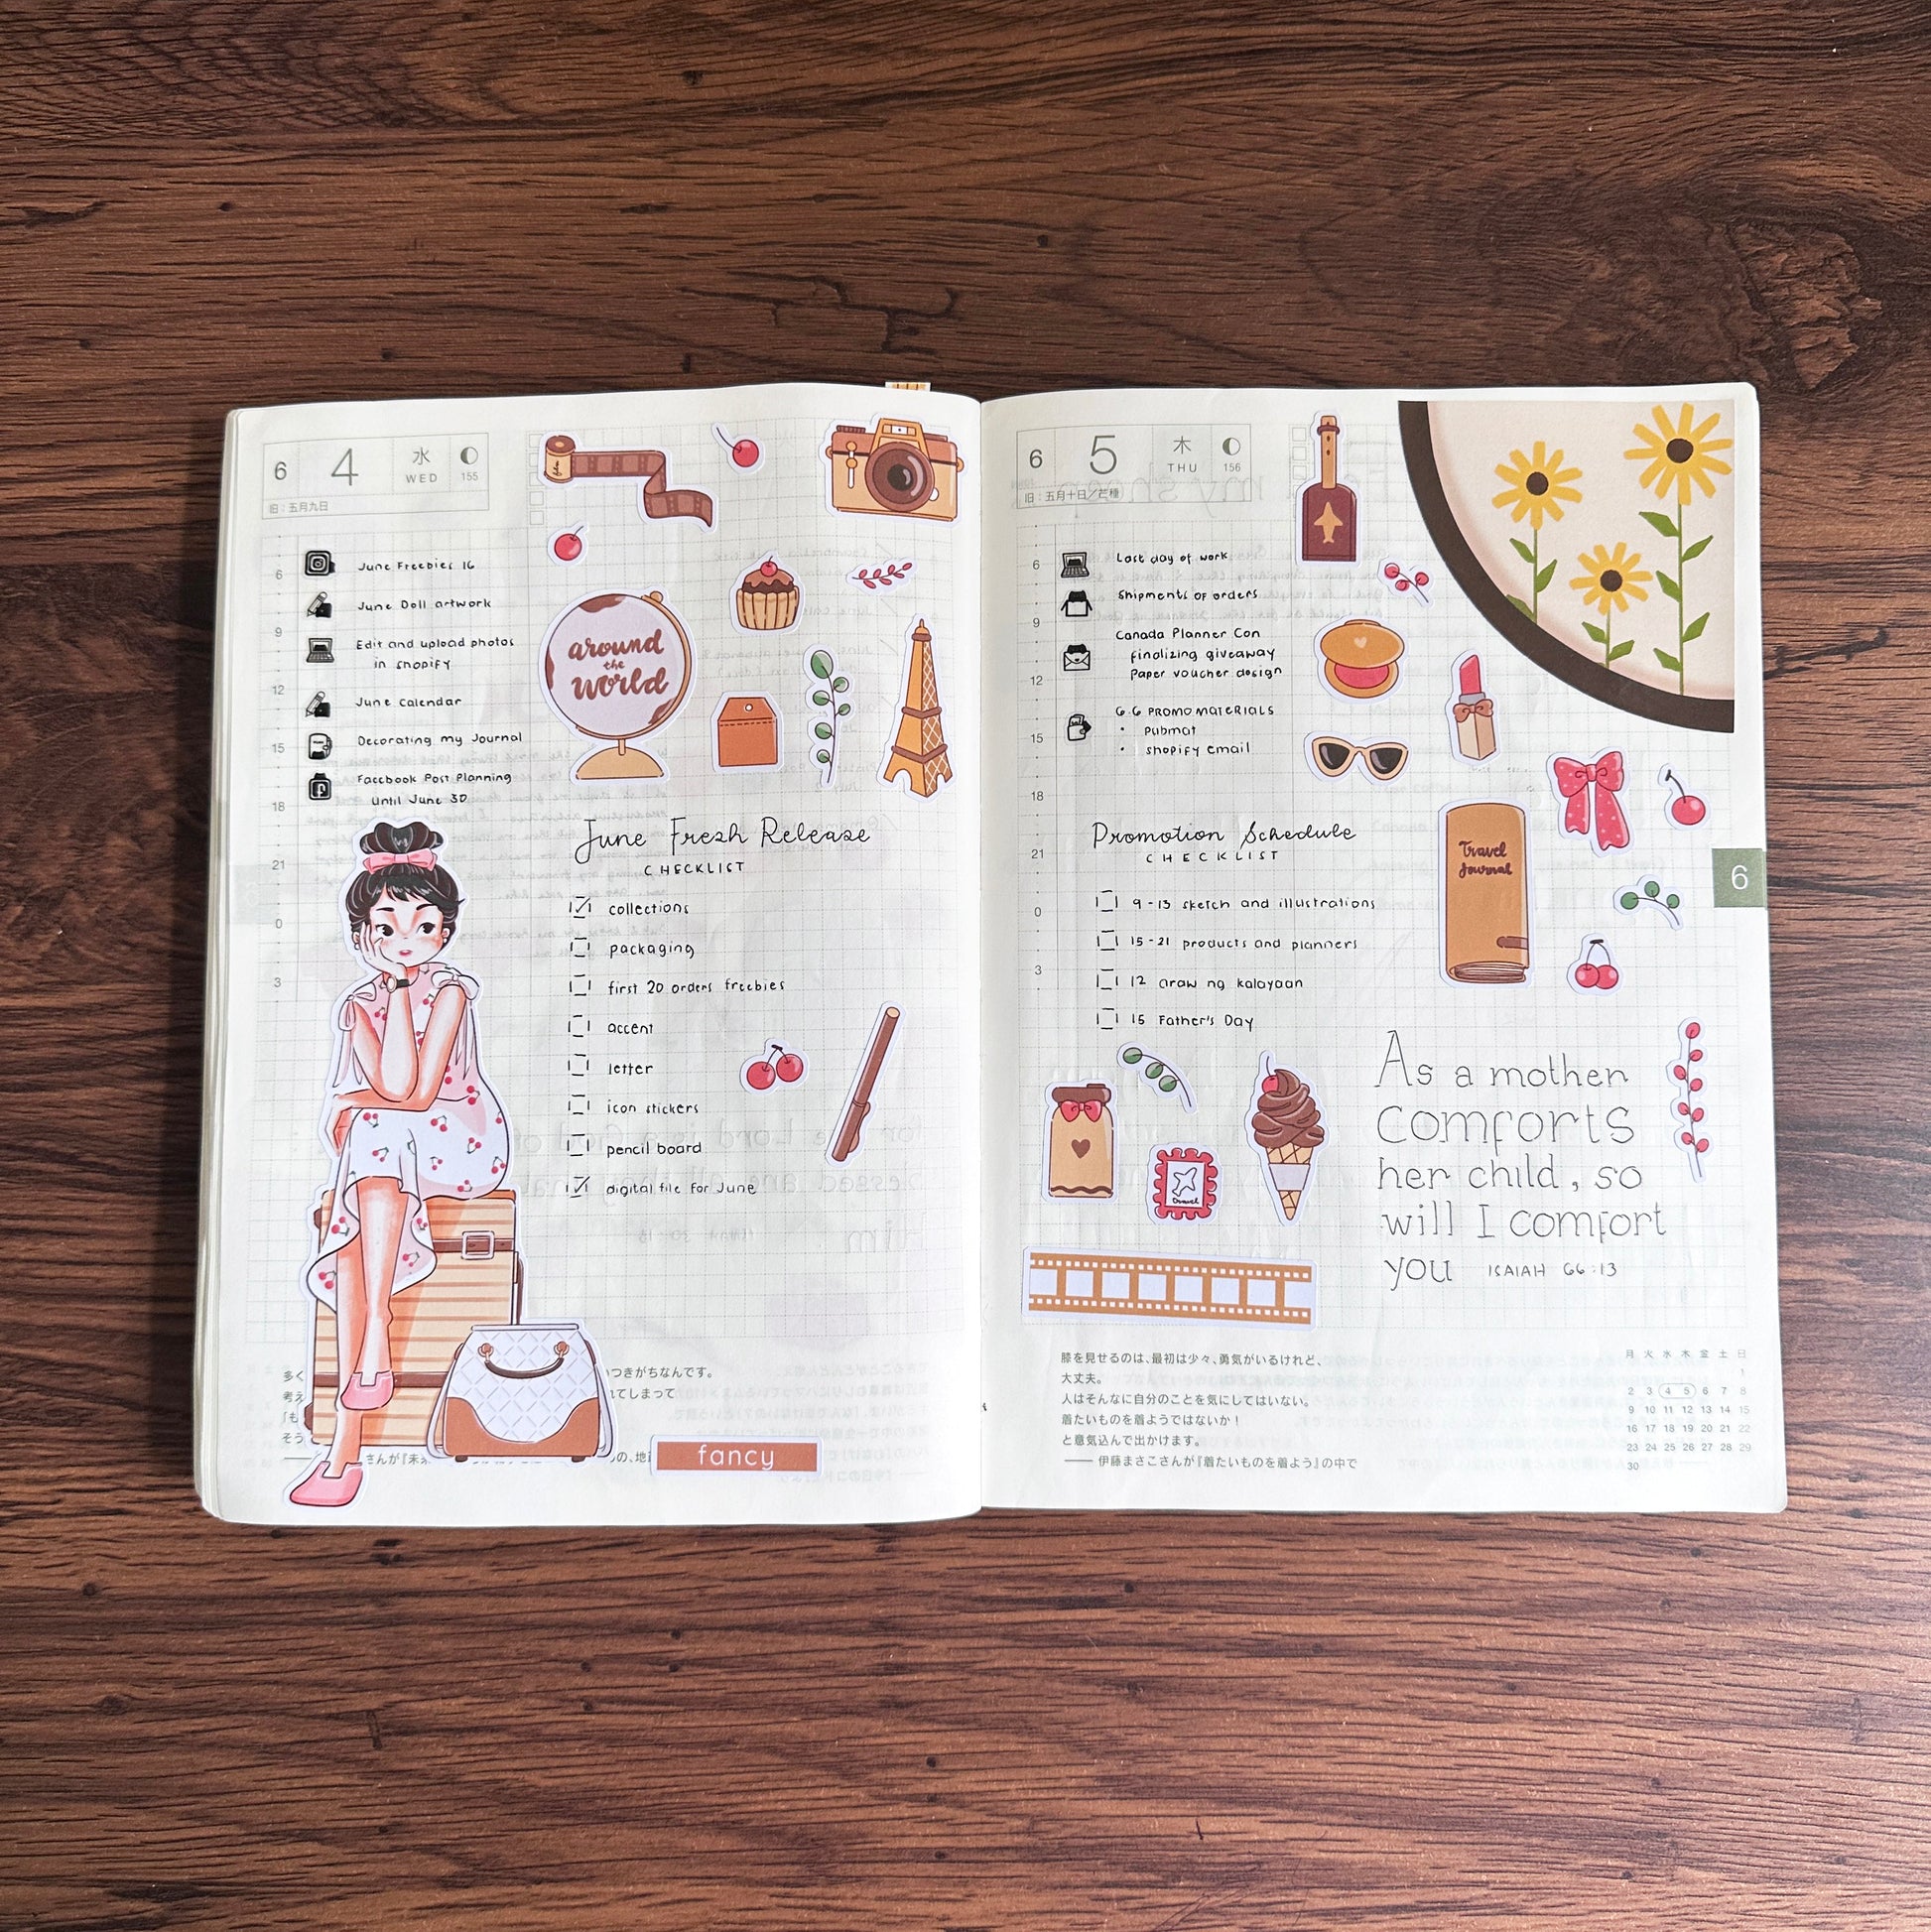 6 4 水 WED 155
旧：五月九日
around
the
world
6
9
12
15
18
21
0
3
June Freebies 16
June Doll artwork
Edit and upload photos
in shopify
June Calendar
Decorating my Journal
Facebook Post Planning
Until June 30
June Fresh Release
CHECKLIST
collections
packaging
first 20 orders freebies
accent
letter
icon stickers
pencil board
digital file for June
多く つきがちなんです。
考え てしまって
「も
そう
さんが『未来 の、地
fancy
6 5 木 THU 156
旧：五月十日／芒種
6
9
12
15
18
21
0
3
Last day of work
Shipments of orders
Canada Planner Con
finalizing giveaway
Paper voucher design
6.6 PROMO MATERIALS
• pubmat
• shopify email
Travel
Journal
6
Promotion Schedule
CHECKLIST
9-13 sketch and illustrations
15-21 products and planners
12 araw ng kalayaan
15 Father's Day
travel
As a mother
comforts
her child, so
will I comfort
you ISAIAH 66:13
膝を見せるのは、最初は少々、勇気がいるけれど、
大丈夫。
人はそんなに自分のことを気にしてはいない。
着たいものを着ようではないか！
と意気込んで出かけます。
── 伊藤まさこさんが『着たいものを着よう』の中で
月 火 水 木 金 土 日
1
2 3 4 5 6 7 8
9 10 11 12 13 14 15
16 17 18 19 20 21 22
23 24 25 26 27 28 29
30